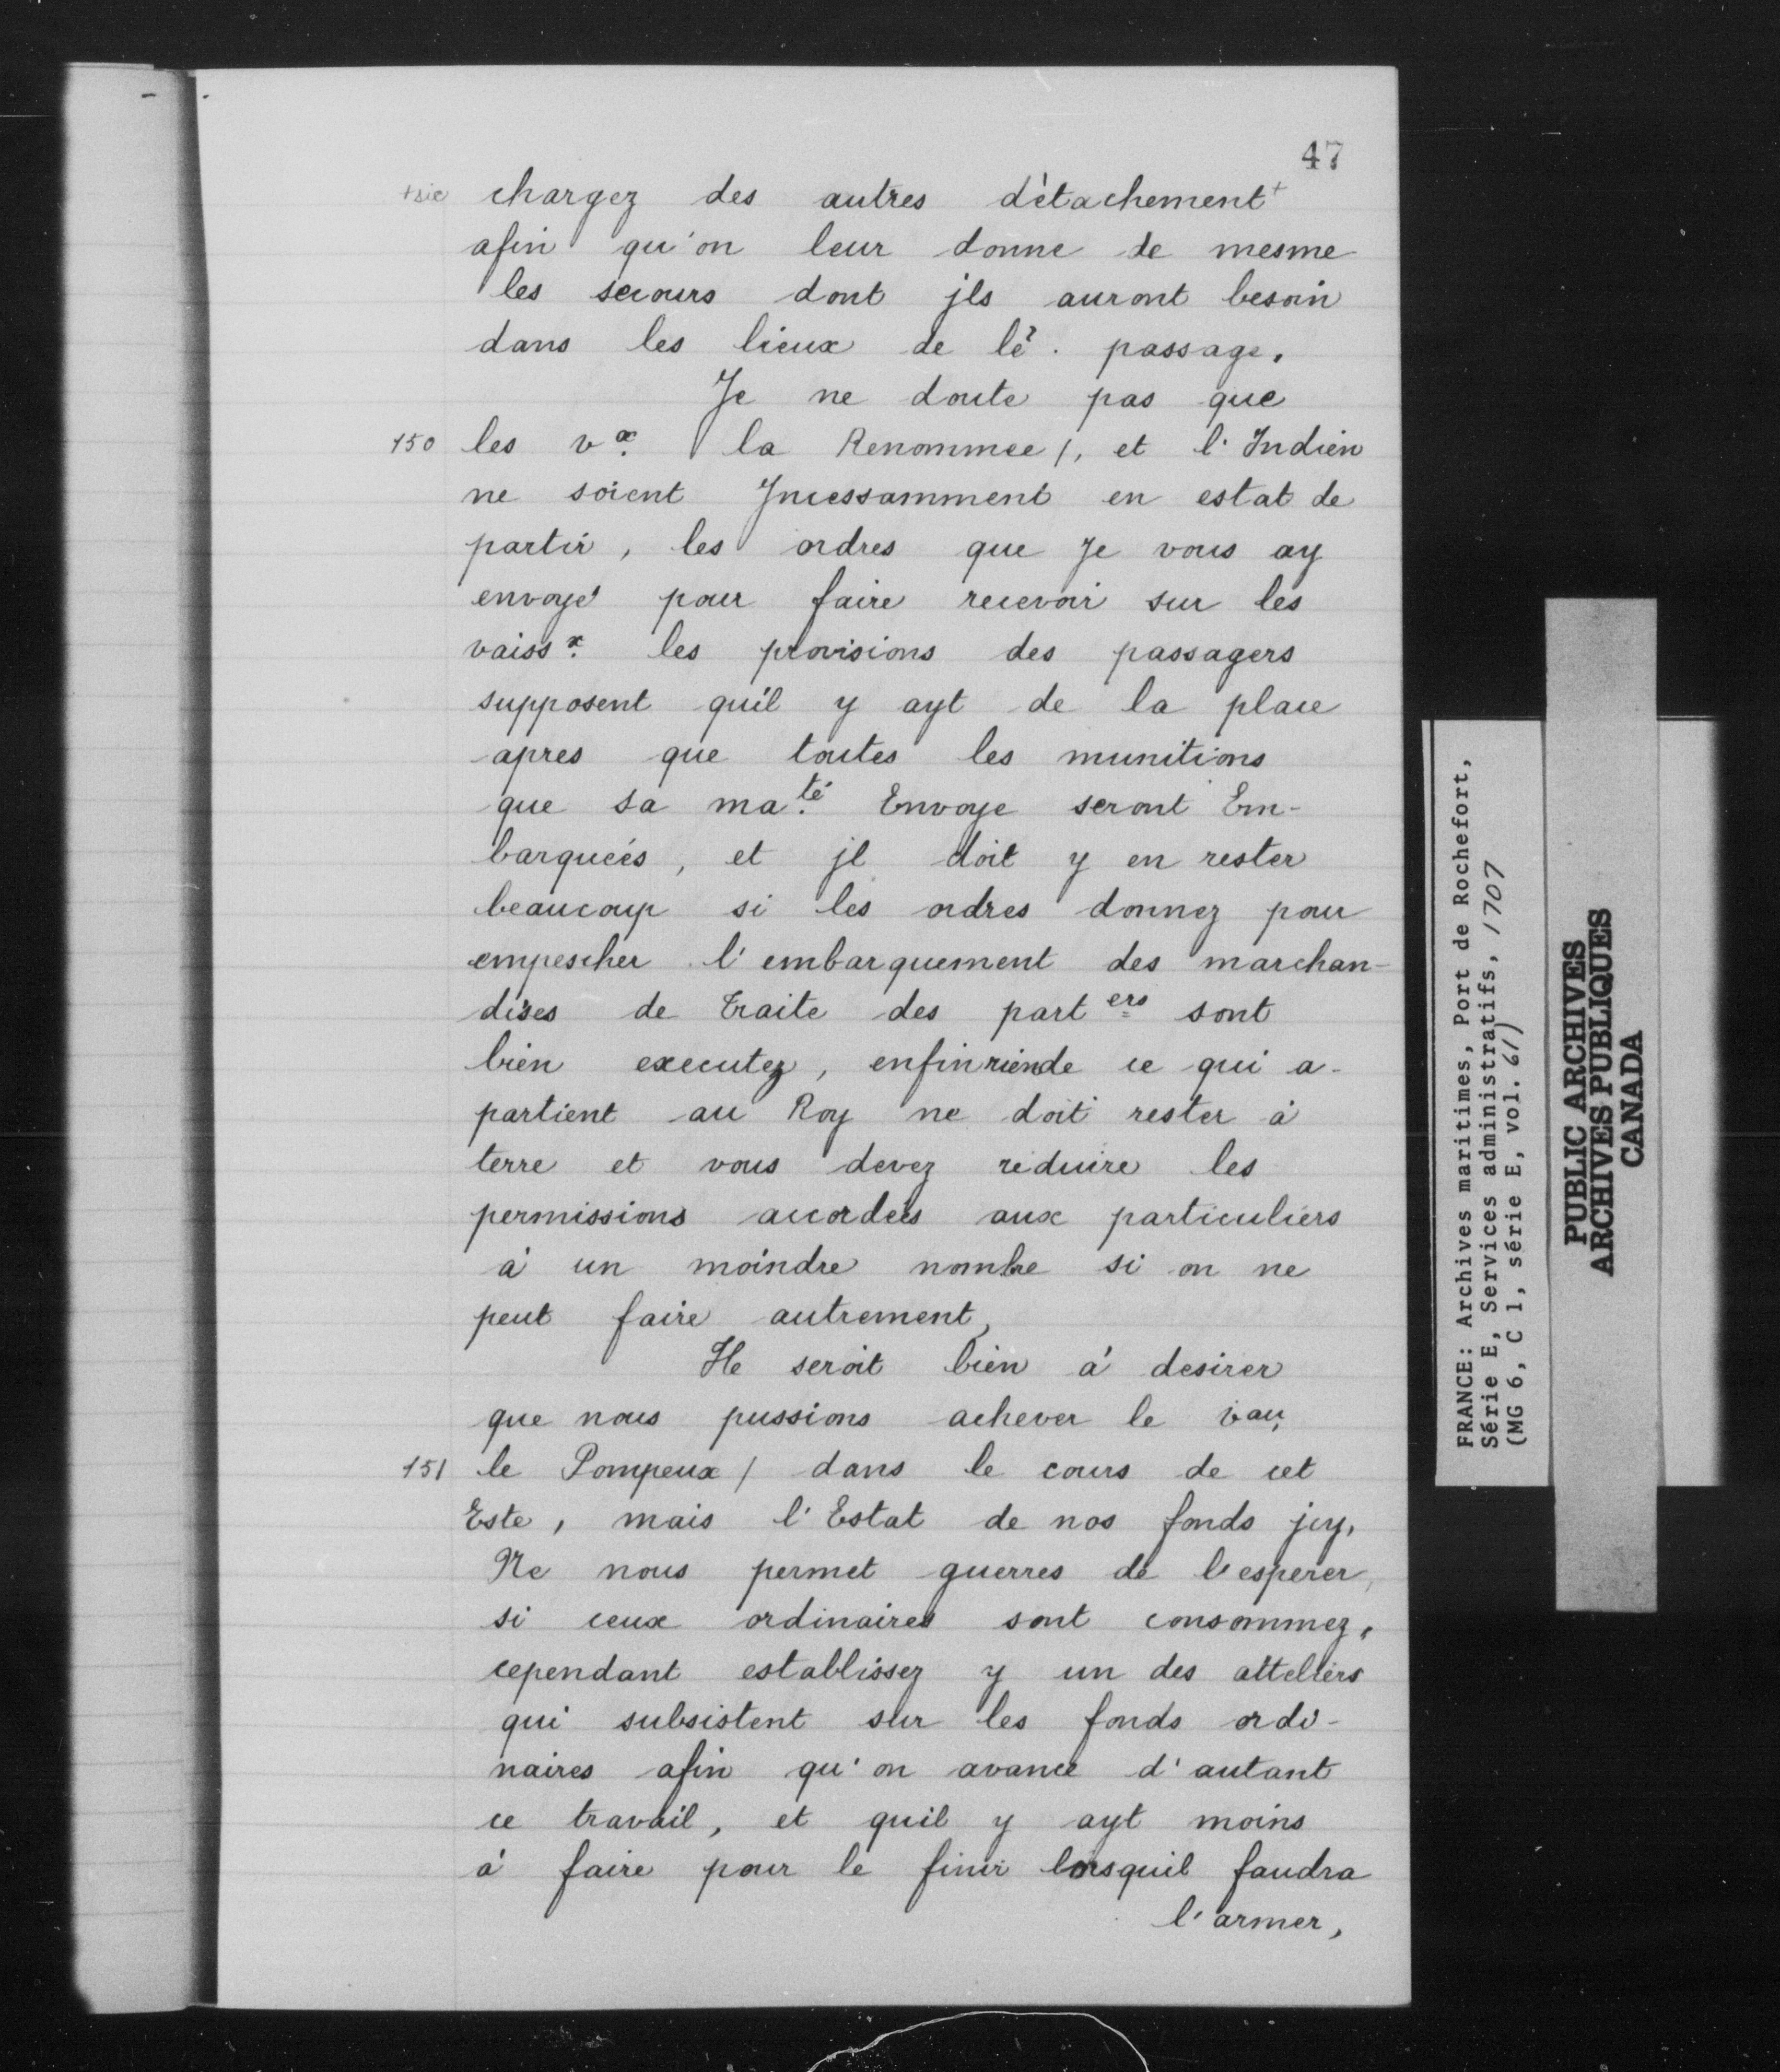 47
+sic chargez des autres détachement+
afin qu'on leur donne de mesme
les secours dont jls auront besoin
dans les lieux de lê. passage.
Je ne doute pas que
150 les vx. la Renommee /, et l'Indien
ne soient Jncessamment en estat de
partir, les ordres que Je vous ay
envoyé pour faire recevoir sur les
vaissx. les provisions des passagers
supposent qu'il y ayt de la place
apres que toutes les munitions
que sa ma.té Envoye seront Em-
barqueés, et jl doit y en rester
beaucoup si les ordres donnez pour
empescher l'embarquement des marchan-
dises de traite des part ers sont
bien executez, enfinriende ce qui a-
partient au Roy ne doit rester à
terre et vous devez réduire les
permissions accordeés aux particuliers
à un moindre nombre si on ne
peut faire autrement,
Jle seroit bien à desirer
que nous pussions achever le vau,
151 le Pompeux / dans le cours de cet
Este, mais l'Estat de nos fonds jcy,
Ne nous permet guerres de l'esperer,
si ceux ordinaires sont consommez,
cependant establissez y un des atteliers
qui subsistent sur les fonds ordi-
naires afin qu'on avance d'autant
ce travail, et quil y ayt moins
à faire pour le finir lorsquil faudra
l'armer,
FRANCE: Archives maritimes, Port de Rochefort,
Série E, Services administratifs, 1707
(MG 6, C 1, série E, vol. 61)
PUBLIC ARCHIVES
ARCHIVES PUBLIQUES
CANADA